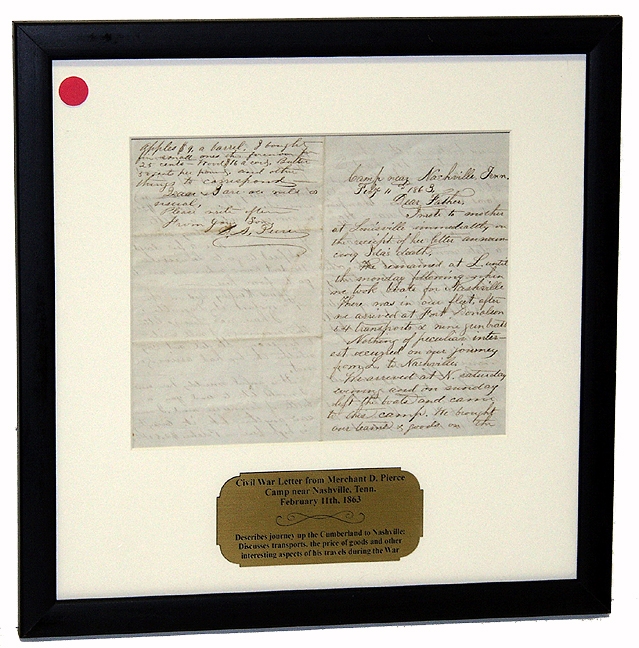 apples $9, a barrel. I bought
small ones this forenoon for
25 cents – Butter
cents per pound and other
things to correspond
I are as well as
usual.
Please write often
From your Son
Pierce
Camp near Nashville Tenn.
Feby 11th 1863
Dear Father,
I wrote to mother
at Louisville immediately on
the receipt of her letter announ-
cing Ida's death.
We remained at L. until
the monday following when
we took boats for Nashville
There was in our fleet, after
we arrived at Fort Donalson
54 transports & nine gunboats
Nothing of peculiar inter-
est occured on our journey
from L. to Nashville
We arrived at N. saturday
evening and on sunday
left the boats and came
to this camp. We brought
our teams & goods on the
Civil War Letter from Merchant D. Pierce
Camp near Nashville, Tenn.
February 11th, 1863
Describes journey up the Cumberland to Nashville:
Discusses transports, the price of goods and other
interesting aspects of his travels during the War